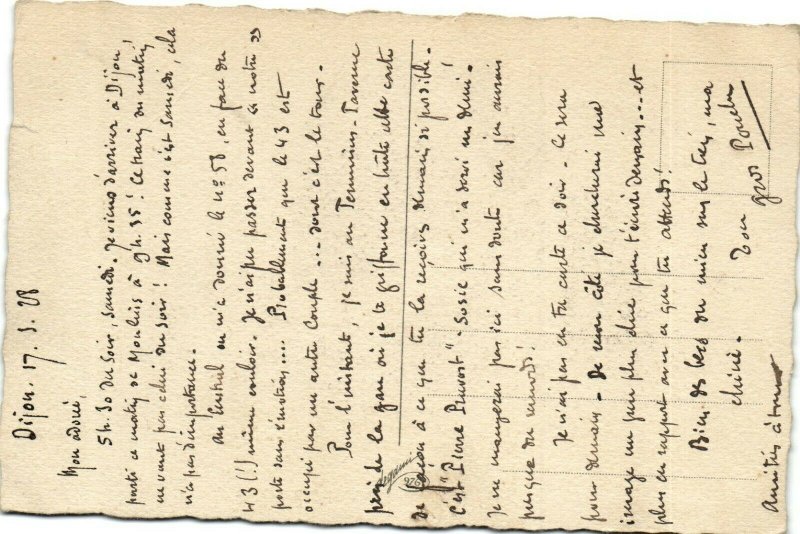 Dijon. 17.3.28
Mon adoré,
5h.30 du soir, samedi. Je viens d'arriver à Dijon,
parti ce matin de Moulins à 9h.35! Ce train du matin
ne vaut pas celui du soir! Mais comme c'est samedi, cela
n'a pas d'importance.
Au Central on m'a donné le n° 58, en face du
43 (!) même couloir. Je n'ai pu passer devant "notre"
porte sans émotion.... Probablement que le 43 est
occupé par un autre couple... donc c'est le tour.
Pour l'instant, je suis au Terminus-Taverne
près de la gare où je te griffonne en hâte cette carte
de façon à ce que tu la reçoives demain si possible.
C'est "Pierre Pruvost" - Sosie qui m'a servi un demi!
Je ne mangerai pas ici sans doute car j'en aurais
presque du remords!
Je n'ai pas eu ta carte ce soir - Ce sera
pour demain - De mon côté je chercherai une
image un peu plus dure pour t'écrire demain... et
plus en rapport avec ce que tu attends!
Bien des bons du mien sur le tien, ma
chérie.
Ton gros
Amitiés à tous